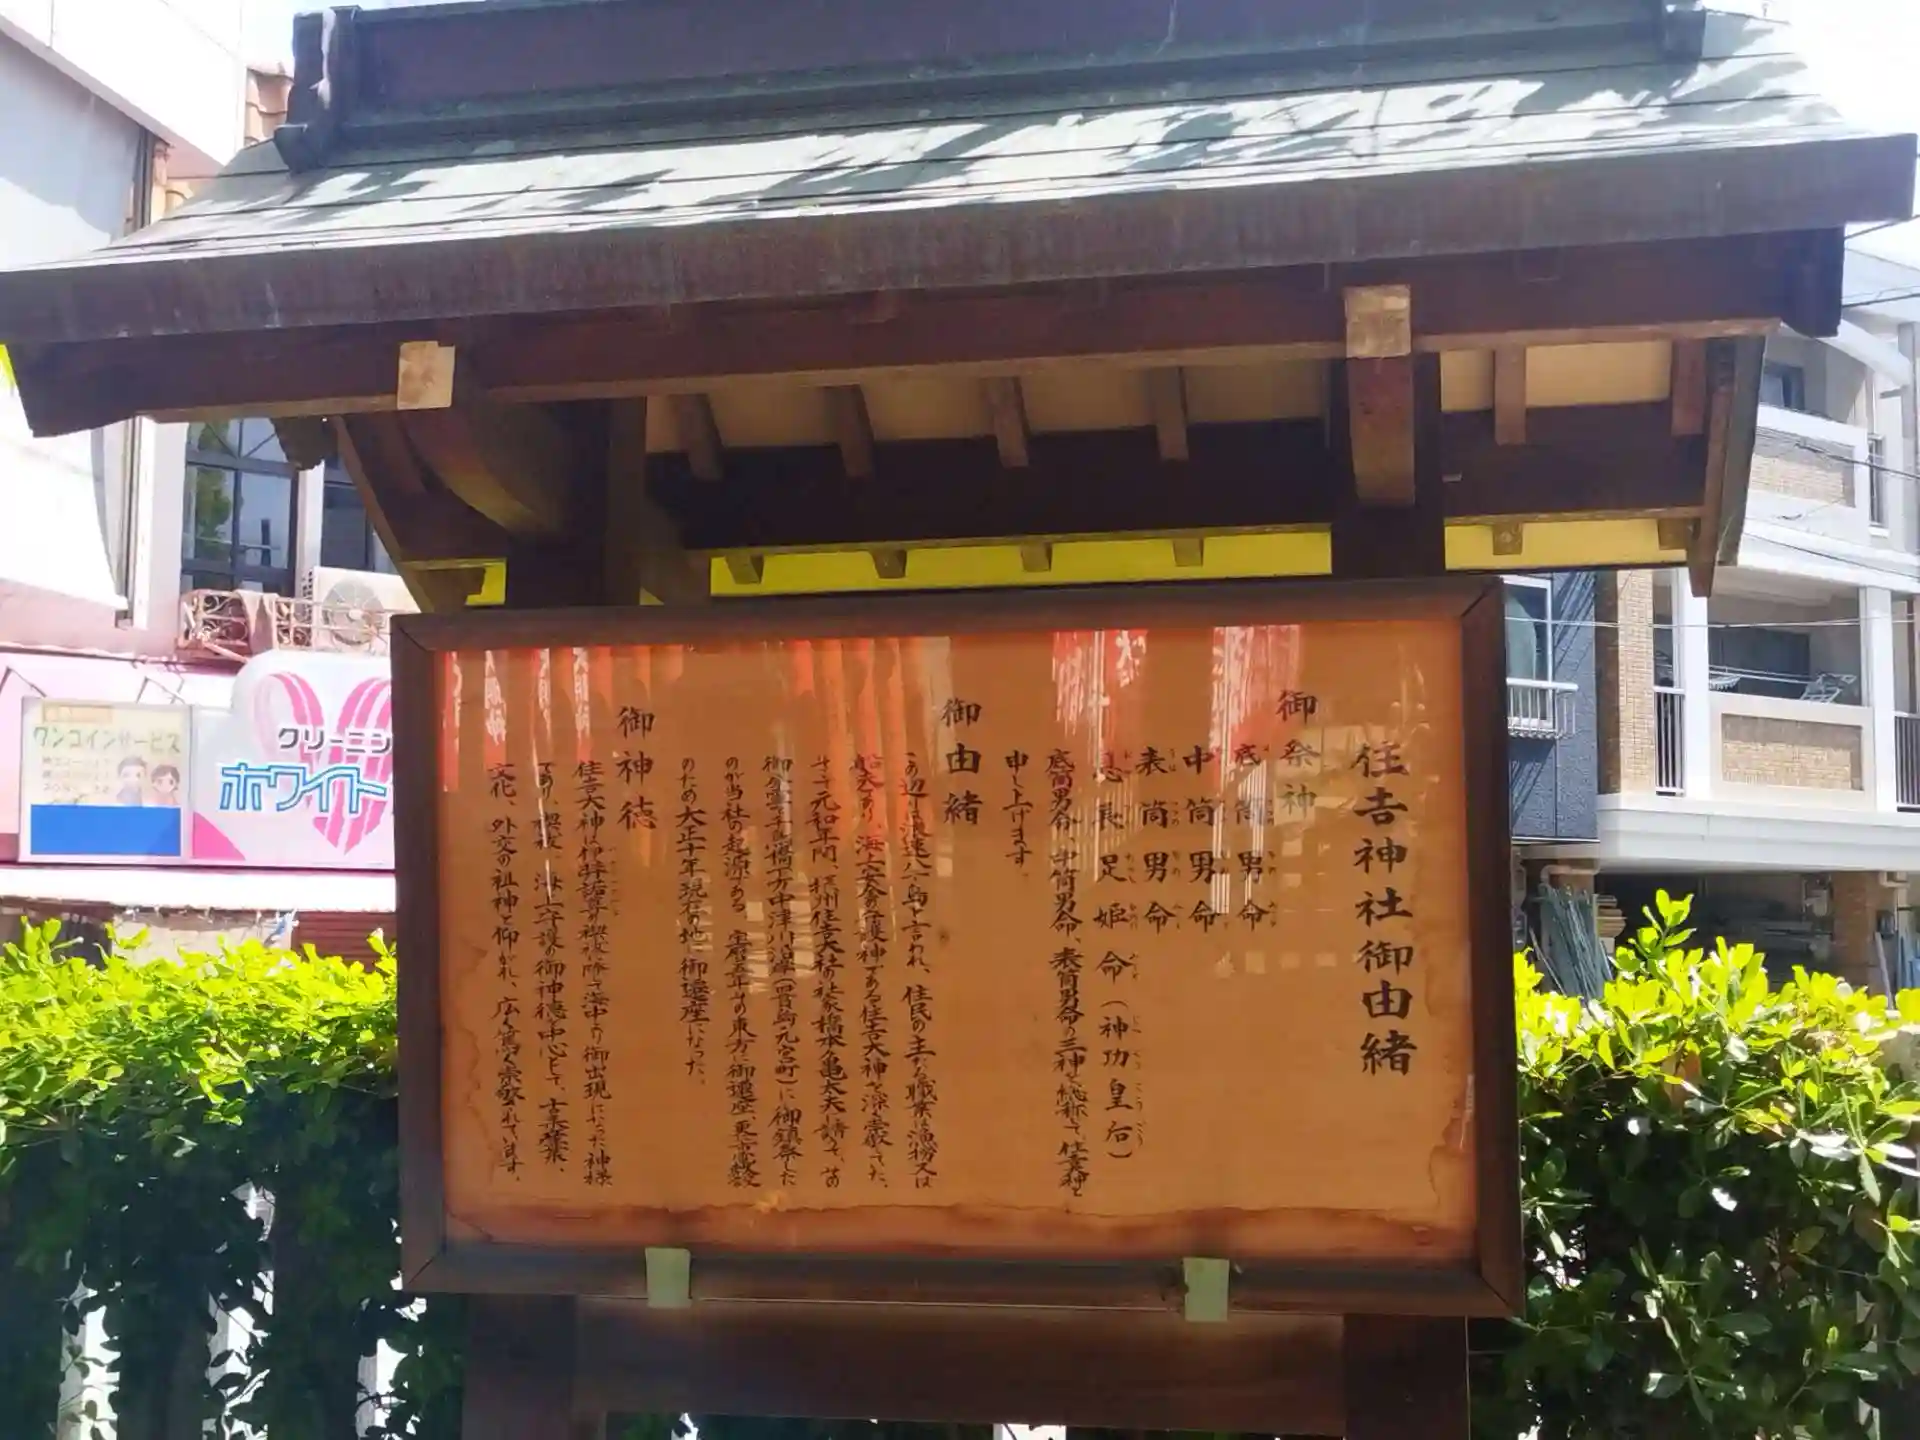 住吉神社御由緒
御祭神
底筒男命
中筒男命
表筒男命
息長足姫命(神功皇后)
底筒男命、中筒男命、表筒男命の三神を総称して、住吉大神と
申し上げます。
御由緒
この辺りは浪速八十島と言われ、住民の主な職業は漁撈又は
船夫であり、海上安全の守護神である住吉大神を深く崇敬した。
元和年間、摂州住吉大社の社家橋本亀太夫に請うて、
御分霊を 橋下方中津川沿岸(四貫島元宮町)に御鎮祭した
のが当社の起源である。宝暦五年 の東方に御遷座、更に電鉄敷設
のため大正十年現在の地に御遷座になった。
御神徳
住吉大神は伊弉諾尊の禊祓に際して海中より御出現になった神様
であり、禊祓、海上守護の御神徳を中心として、
文化、外交の祖神と仰がれ、広く篤く崇敬されています。
クリーニン
ホワイト
ワンコインサービス